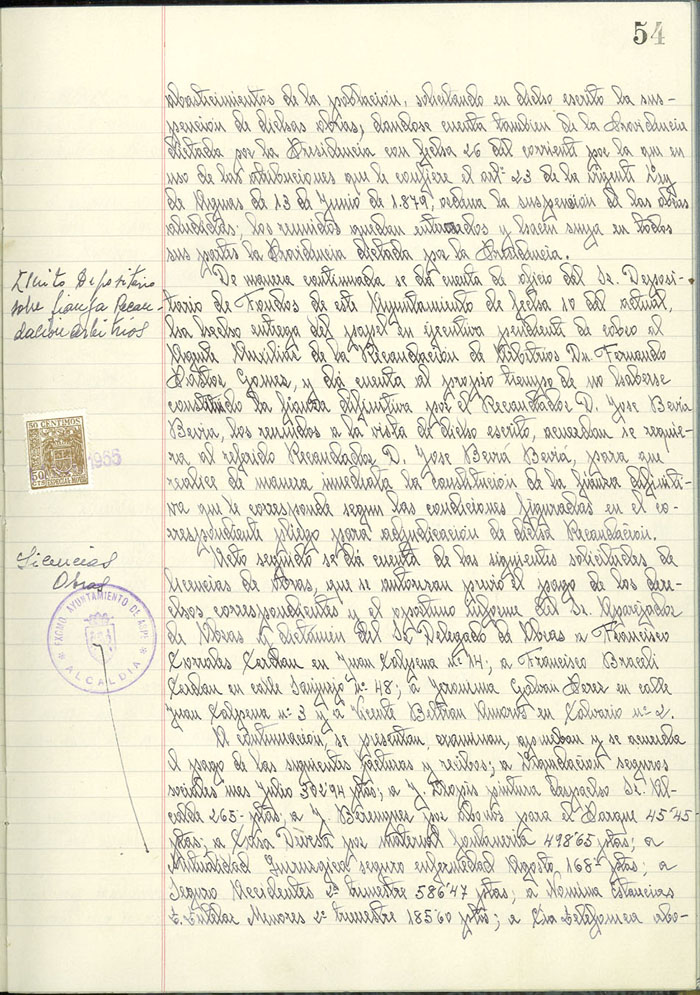 54
abastecimientos de la población, solicitando en dicho escrito la sus-
pención de dichas obras, dandose cuenta tambien de la Providencia
dictada por la Presidencia con fecha 26 del corriente por la que en
uso de las atribuciones que le confiere el artº 23 de la vigente Ley
de Aguas de 13 de Junio de 1879, ordena la suspención de las obras
aludidas, los reunidos quedan enterados y hacen suya en todos
sus partes la Providencia dictada por la Presidencia.
Escrito Depositario
sobre fianza Recau-
dacion arbitrios
De manera continuada se dá cuenta de oficio del Sr. Deposi-
tario de Fondos de este Ayuntamiento de fecha 10 del actual,
ha hecho entrega del papel en ejecutiva pendiente de cobro al
Agente Auxiliar de la Recaudación de Arbitrios Dn. Fernando
Pastor Gomes, y dá cuenta al propio tiempo de no haberse
constituido la fianza difinitiva por el Recaudador D. Jose Beviá
Beviá, los reunidos a la vista de dicho escrito, acuerdan se requie-
ra al referido Recaudador D. Jose Beviá Beviá, para que
realice de manera inmediata la constitución de la fianza difiniti-
va que le corresponde segun las condiciones figuradas en el co-
rrespondiente pliego para adjudicacion de dicha Recaudacion.
50 CENTIMOS
1955
Licencias
Obras
EXCMO. AYUNTAMIENTO DE ASPE
ALCALDIA
Acto seguido se dá cuenta de las siguientes solicitudes de
licencias de Obras, que se autorizan previo el pago de los dere-
chos correspondientes y el oportuno informe del Sr. Aparejador
de Obras y dictamen del Sr. Delegado de Obras a Francisco
Corrales Cerdan en Juan Calpena nº 14; a Francisco
Cerdan en calle nº 48; a Jeronima Galvan Perez en calle
Juan Calpena nº 3 y a Vicente Beltran en Calvario nº 2.
A continuación, se presentan, examinan, aprueban y se acuerda
el pago de las siguientes facturas y recibos; a Liquidacion seguros
sociales mes Julio ptas; a J. pintura despacho Sr. Al-
calde 265- ptas; a J. Berenguer por abonos para el Parque 45'45
ptas; a Casa por material fontaneria 498'65 ptas; a
Mutualidad seguro enfermedad Agosto 168- ptas; a
Seguro Accidentes 2º trimestre 586'47 ptas; a Nomina Estancias
Tutelar Menores 2º trimestre 185'60 ptas; a Cia telefonica abo-